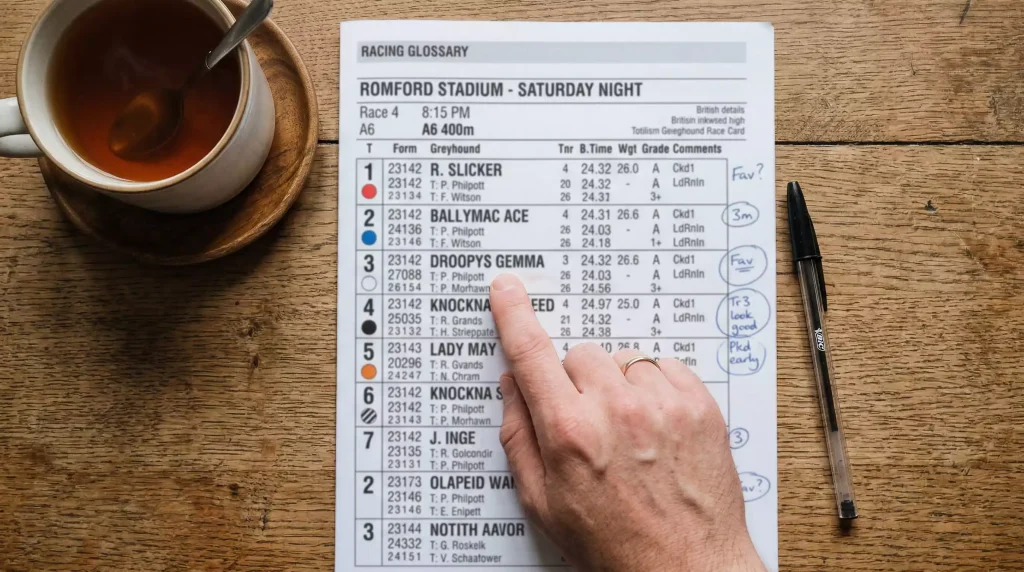 RACING GLOSSARY
ROMFORD STADIUM - SATURDAY NIGHT
Race 4 8:15 PM British details
Britisin inkwsed high
A6 A6 400m Totilism Geieghound Race Card
T Form Greyhound Tnr B.Time Wgt Grade Comments
1 23142 R. SLICKER 4 24.32 26.0 A Ckd1 Fav?
23142 T: P. Philpott 20 24.32 - A LdRnIn
23134 T: F. Witson 26 24.31 3+
2 23142 BALLYMAC ACE 4 24.31 26.6 A Ckd1 3m
24136 T: P. Philpott 26 24.03 - A LdRnIn
23146 T: F. Witson 26 24.18 1+ LdRnIn
3 23142 DROOPYS GEMMA 3 24.32 26.6 A Ckd1 Fav
27088 T: P. Philpott 26 24.03 - A LdRnIn
26154 T: P. Morhawn 26 24.56 3+
4 23142 KNOCKNA EED 4 24.97 25.0 A Ckd1 Tr3
25035 T: R. Grands 21 24.32 - A LdRnIn look
23132 T: H. Strieppate 26 24.38 3+ good
5 23143 LADY MAY 26.8 A Ckd1 Pkd
20296 T: R. Gvands early
24247 T: N. Chram
6 23142 KNOCKNA S
23142 T: P. Philpott
23143 T: P. Morhawn
7 23142 J. INGE 3
23135 T: R. Golcondir
23131 T: P. Philpott
2 23173 OLAPEID WA av?
23146 T: P. Philpott
23146 T: E. Enipett
3 23144 NOTITH AAVOR
24332 T: G. Roskelk
24151 T: V. Schaafower
BIC